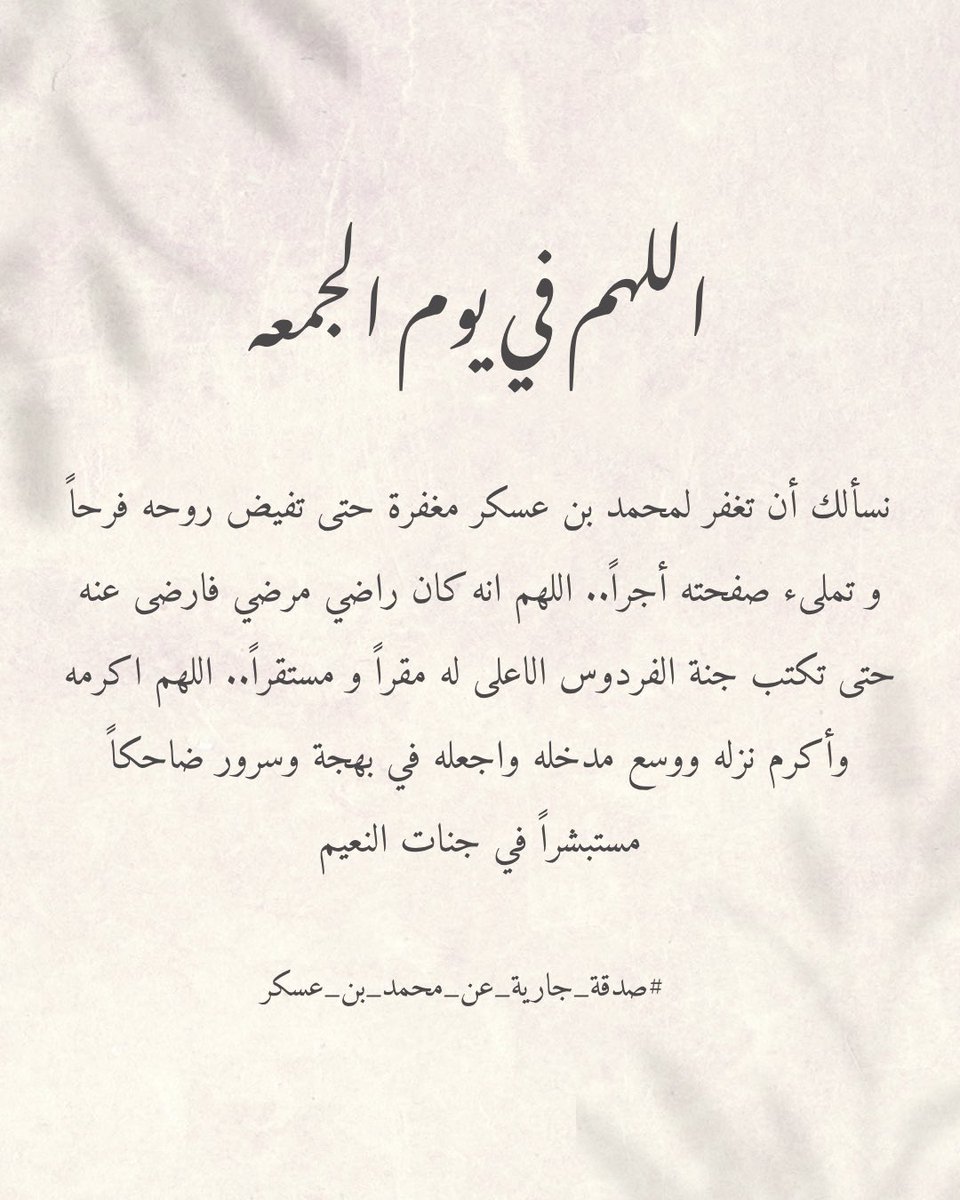 اللهم في يوم الجمعه
نسألك أن تغفر لمحمد بن عسكر مغفرة حتى تفيض روحه فرحاً
و تملىء صفحته أجراً.. اللهم انه كان راضي مرضي فارضى عنه
حتى تكتب جنة الفردوس الاعلى له مقراً و مستقراً.. اللهم اكرمه
وأكرم نزله ووسع مدخله واجعله في بهجة وسرور ضاحكاً
مستبشراً في جنات النعيم
#صدقة_جارية_عن_محمد_بن_عسكر